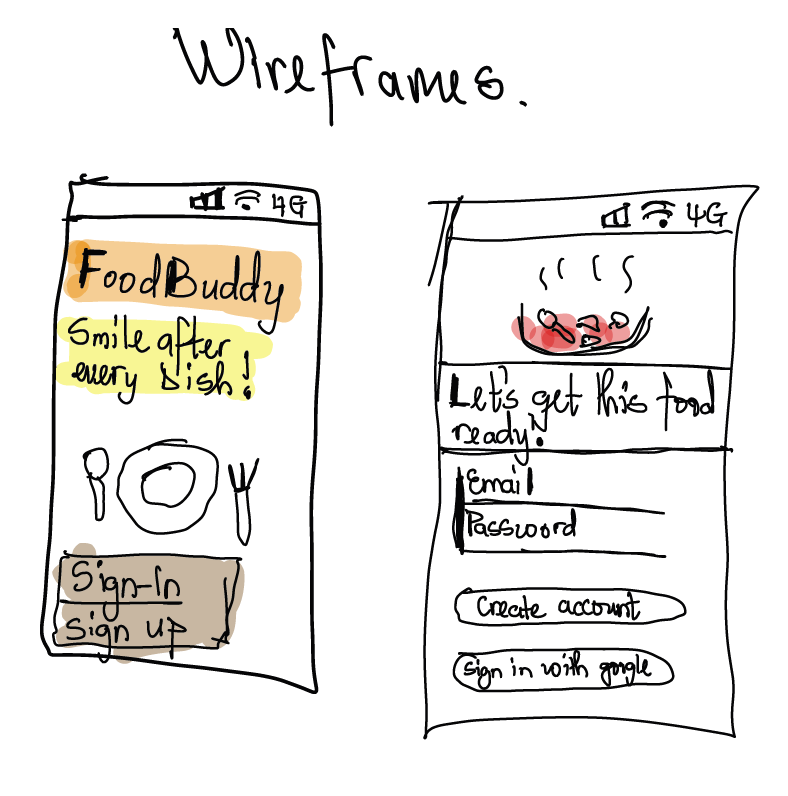 Wireframes.
4G
FoodBuddy
Smile after
every Dish!
Sign-In
Sign up
4G
Let's get this food
ready!
Email
Password
Create account
Sign in with google